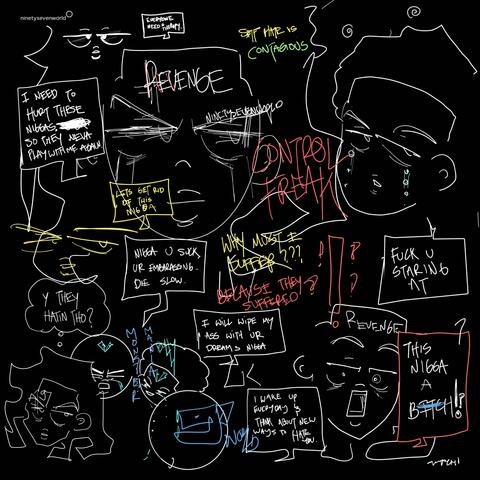 ninetysevenworld
EVERYONE
NEED THERAPY.
SELF HATE IS
CONTAGIOUS
REVENGE
I NEED TO
HURT THESE
NIGGAS
SO THEY NEVA
PLAY WITH ME AGAIN
NINETYSEVENWORLD
CONTROL
FREAK
LETS GET RID
OF THIS
NIGGA
WHY MUST I
SUFFER???
BECAUSE THEY
SUFFERED
?
!
?
?
NIGGA U SUCK,
UR EMBARASSING.
DIE SLOW.
FUCK U
STARING
AT
Y THEY
HATIN THO?
I WILL WIPE MY
ASS WITH UR
DREAMS NIGGA
REVENGE
?
THIS
NIGGA
A
BITCH!!
MONSTER
I WAKE UP
EVERYDAY &
THINK ABOUT NEW
WAYS TO HATE
YOU.